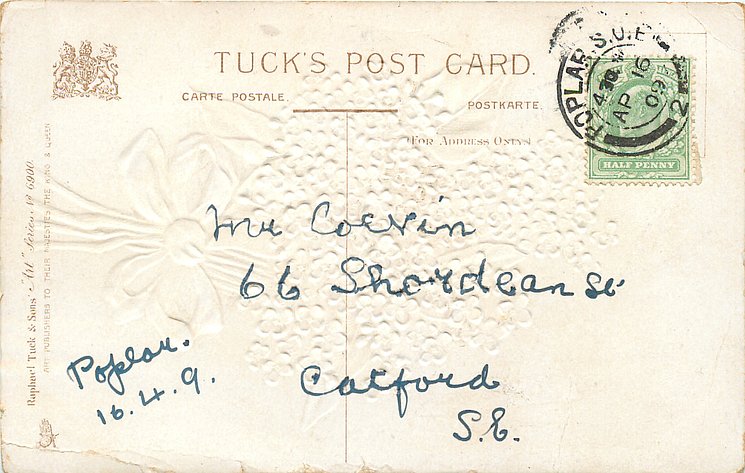 TUCK'S POST CARD.
CARTE POSTALE.
POSTKARTE.
(FOR ADDRESS ONLY.)
POPLAR S.O.E
4 30
AP 16
09
2
HALF PENNY
Raphael Tuck & Sons' "Art" Series
ART PUBLISHERS TO THEIR MAJESTIES THE KING & QUEEN
Mr
66 Shordean St
Catford
S.E.
Poplar.
16.4.9.